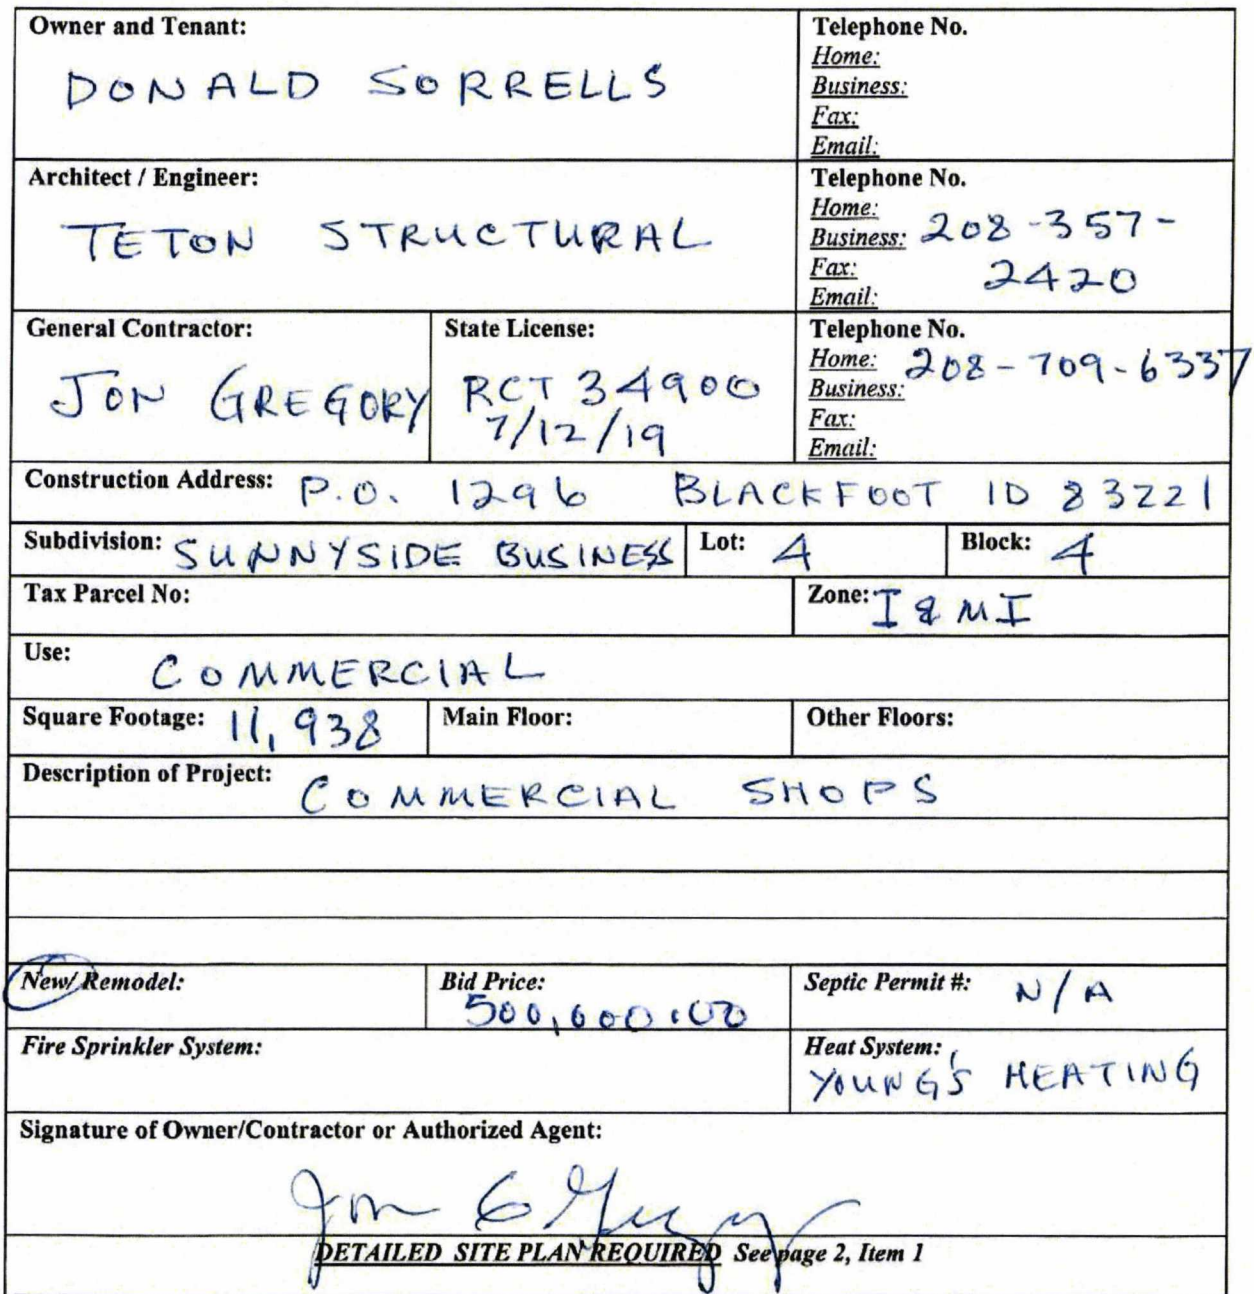 Owner and Tenant:
DONALD SORRELLS
Telephone No.
Home:
Business:
Fax:
Email:
Architect / Engineer:
TETON STRUCTURAL
Telephone No.
Home:
Business: 208-357-
Fax: 2420
Email:
General Contractor:
JON GREGORY
State License:
RCT 34900
7/12/19
Telephone No.
Home: 208-709-6337
Business:
Fax:
Email:
Construction Address: P.O. 1296 BLACKFOOT ID 83221
Subdivision: SUNNYSIDE BUSINESS Lot: 4 Block: 4
Tax Parcel No: Zone: I & MI
Use: COMMERCIAL
Square Footage: 11,938 Main Floor: Other Floors:
Description of Project: COMMERCIAL SHOPS
New/ Remodel:
Bid Price:
500,000.00
Septic Permit #: N/A
Fire Sprinkler System:
Heat System:
YOUNG'S HEATING
Signature of Owner/Contractor or Authorized Agent:
Jon G Gregory
DETAILED SITE PLAN REQUIRED See page 2, Item 1